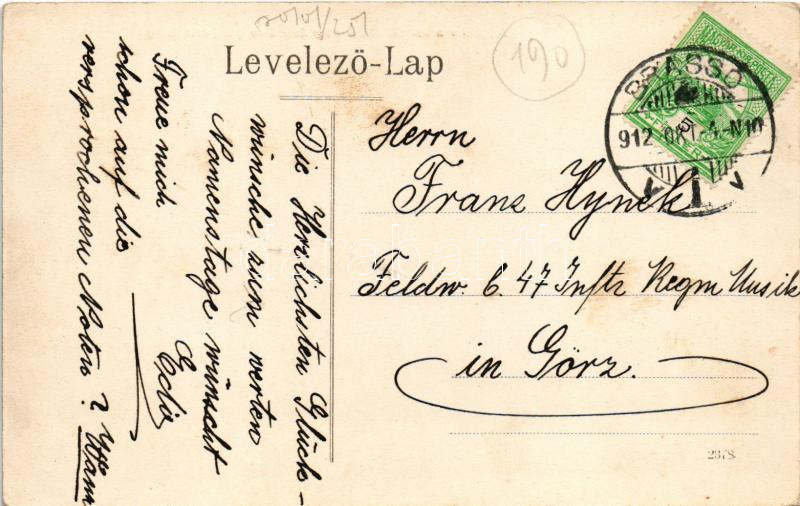 Levelezö-Lap
190
BRASSÓ
912 OKT. -N10
1
Herrn
Franz Hynek
Feldw. b. 47 Inftr Regm Musik
in Görz.
Die Herzlichsten Glück-
wünsche zum werten
Namenstage wünscht
Freue mich
schon auf die
versprochenen Noten? Wann
2378.
darabanth